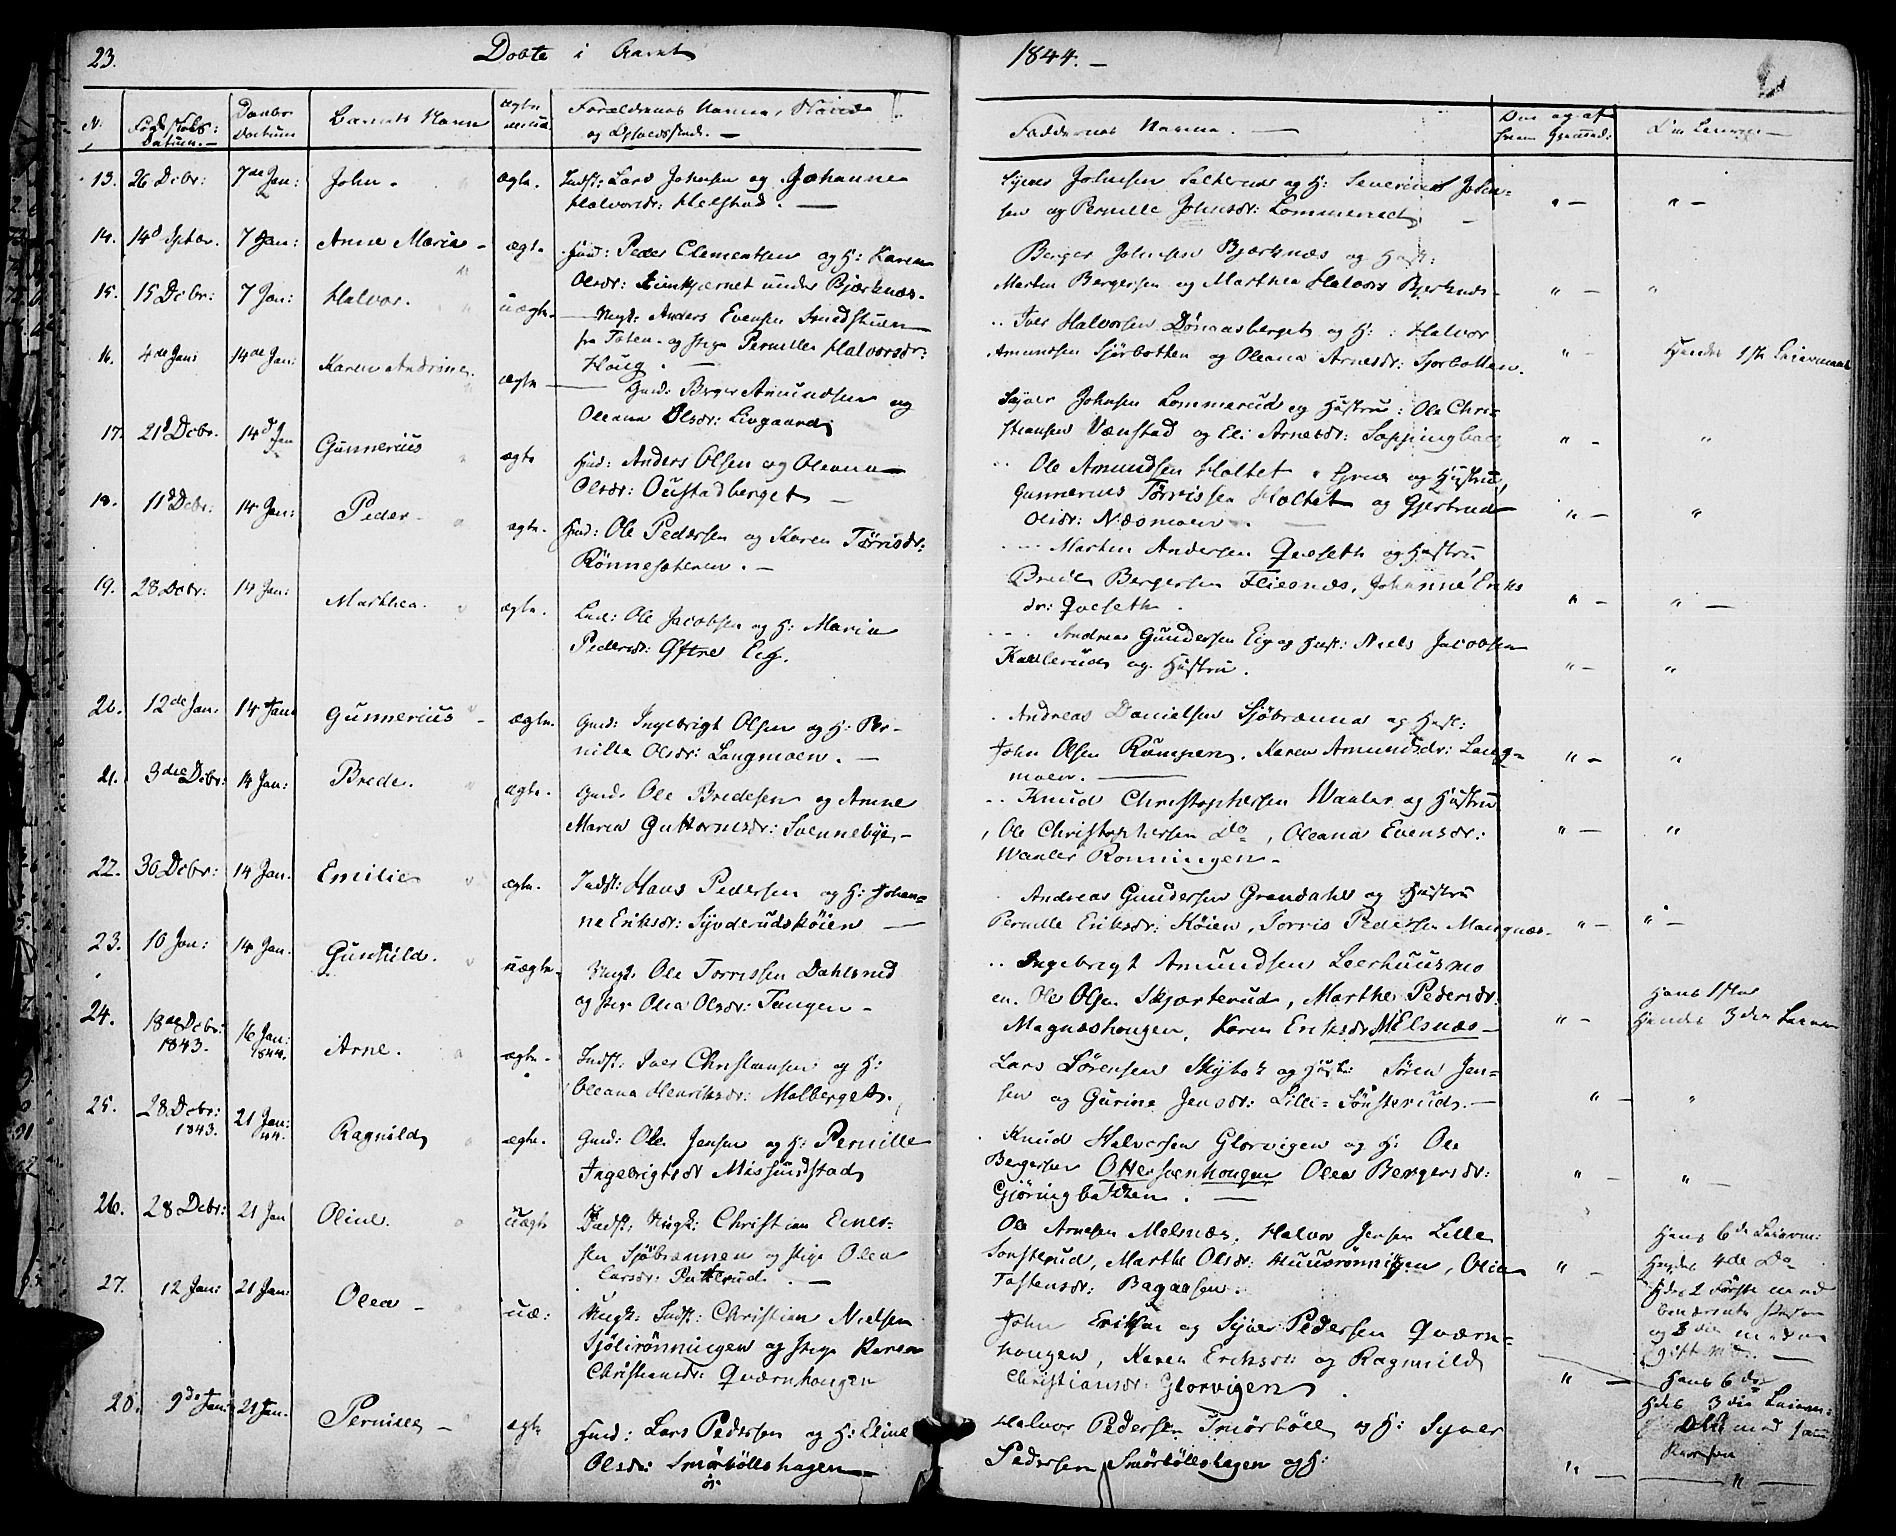 23. Døbte i Aaret 1844. —
N: Fødselsdatum. — Daabs Datum Barnets Navn ægte uægte Forældrenes Navne, Stand og Opholdssted. — Faddernes Navne. — Ind og af frem Leierm: —
13. 26 Dcbr: 7de Jan: John. ægte. Indst: Lars Johnsen og Johanne
Halvorsdr: Helstad. —
Syver Johnsen og H: Severinus John=
sen og Pernille Johnsdr: Lommerud " — " —
14. 14d Sptbr. 7 Jan: Anne Marie — ægte. Hmd: Peder Clementsen og H: Karen
Olsdr: under Bjærknæs.
Berger Johnsen Bjærknæs og Hust:
Marten Bergersen og Marthea Halvors Bjerknæs " — "
15. 15 Dcbr: 7 Jan: Halvor. uægte. Ungk: Anders Evensen Smedstuen
fra Toten og Pige Pernille Halvorsdr:
Houg. —
Iver Halvorsen Dønnasberget og H: Halvor
Amundsen Sjørbotten og Oleana Arnesdr: Sjorbotten. " — Hendes 1ste Leiermaal
16. 4de Jan: 14de Jan: Karen Andrine. ægte — Gmd: Berger Amundsen og
Oleana Olsdr: Lingaard
Syver Johnsen Lommerud og Hustru: Ole Chri=
stiansen Vænstad og Eli Arnesdr: " — "
17. 21d Dcbr. 14d Jan Gunnerius ægte Hmd: Anders Olsen og Oleana
Olsdr: Oustadberget —
Ole Amundsen Holtet og Hustru,
Gunnerius Tørrissen Holtet og Gjertrud
Olsdr: Næsmoen. " — "
18. 11d Dcbr: 14 Jan: Peder. ægte. Hmd: Ole Pedersen og Karen Tørrisdr:
Rønnesæteren. —
Marten Andersen Qvæseth og Hustru
Brede Bergersen Flisnæs, Johanne Eriks
dr: Qvæseth. " — " —
19. 28 Dcbr: 14 Jan: Marthea. ægte. Ole Jacobsen og H: Maria
Pedersdr: Eig.
Andreas Gundersen Eig og Hust: Niels Jacobsen
og Hustru. " — "
20. 12de Jan. 14 Jan: Gunnerius — ægte. Gmd: Ingebrigt Olsen og H: Per-
nille Olsdr: Langmoen. —
Andreas Danielsen Sjøbrænna og Hust:
John Olsen Rumpen. Karen Amundsdr: Lang=
moen. — " — "
21. 3die Dcbr: 14 Jan: Brede. ægte. Gmd: Ole Bredesen og Anne
Maria Guttormsdr: Svennebye, —
Knud Christophersen Waaler og Hustru
Ole Christophersen Do, Oleana Evensdr:
Waaler Rønningen — " — "
22. 30 Dcbr: 14 Jan. Emilie ægte. Indst: Hans Pedersen og H: Johan=
ne Eriksdr: Syvderudskøien —
Andreas Gundersen Grøndahl og Hustru
Pernille Eriksdr: Køien, Torris Pedersen Mangnæs. " — " —
23. 10 Jan: 14 Jan. Gunhild. uægte. Ungk: Ole Torrissen Dahlsrud
og Pige Olea Olsdr: Tangen —
Ingebrigt Amundsen Leerhuusmo
en. Ole Olsen Skjærterud, Marthe Pedersdr:
Magnæshougen, Karen Eriksdr: Melsnæs — " — Hans 1ste
Hendes 3die Leierm
24. 18de Dcbr: 1843. 16 Jan: 1844. Arne. ægte. Indst: Iver Christiansen og H:
Oleana Henriksdr: Malberget.
Lars Sørensen Skybak og Hustr: Søren Jen=
sen og Gurine Jensdr: Lille=Sønsterud. — " — "
25. 28 Dcbr: 1843. 21 Jan: 44. Ragnild ægte. Gmd: Ole Jensen og H: Pernille
Ingebrigtsdr Missundstad
Knud Halvorsen Glorvigen og H: Ole
Bergersen Ottersøenhougen Olea Bergersdr:
Gjøringbakken. — " — " —
26. 28 Dcbr: 21 Jan Oline. uægte Indst: Ungk: Christian Einer=
sen Sjøbrænnen og Pige Olea
Larsdr: Putterud. —
Ole Arnesen Melsnæs, Halvor Jensen Lille
Sønsterud, Marthe Olsdr: Huusrønningen, Olia
Tostensdr: Bagaasen. " — Hans 6de Leierm:
Hendes 4de Do
Hdes 2 Første med
benævnte Person
og 3die med en
gift Md. —
27. 12 Jan: 21 Jan: Olea — uæ: Ungk: Indst: Christian Nielsen
Sjølirønningen og Pige Karen
Christiansdr: Qværnhougen
John Eriksen og Syver Pedersen Qværn=
hougen, Karen Eriksdr: og Ragnild
Christiansdr: Glorvigen. " — Hans 6de
Hdes 3die Leierm:
Alle med samme
Person
28. 9de Jan: 21 Jan. Pernille — ægte Hmd: Lars Pedersen og H: Eline
Olsdr: Smørbøllshagen —
Halvor Pedersen Smørbøll og H: Syver
Pedersen Smørbøllshagen og H: " — — " —